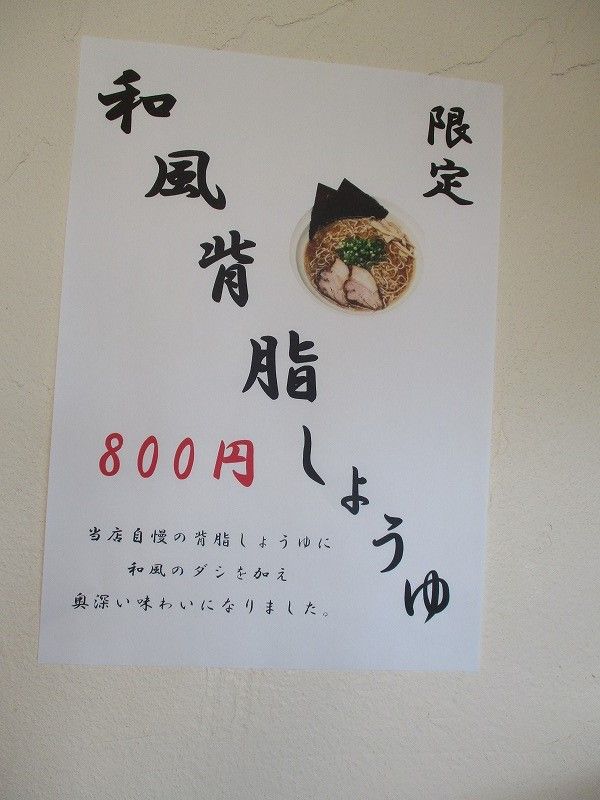 限定
和風背脂しょうゆ
800円
当店自慢の背脂しょうゆに
和風のダシを加え
奥深い味わいになりました。